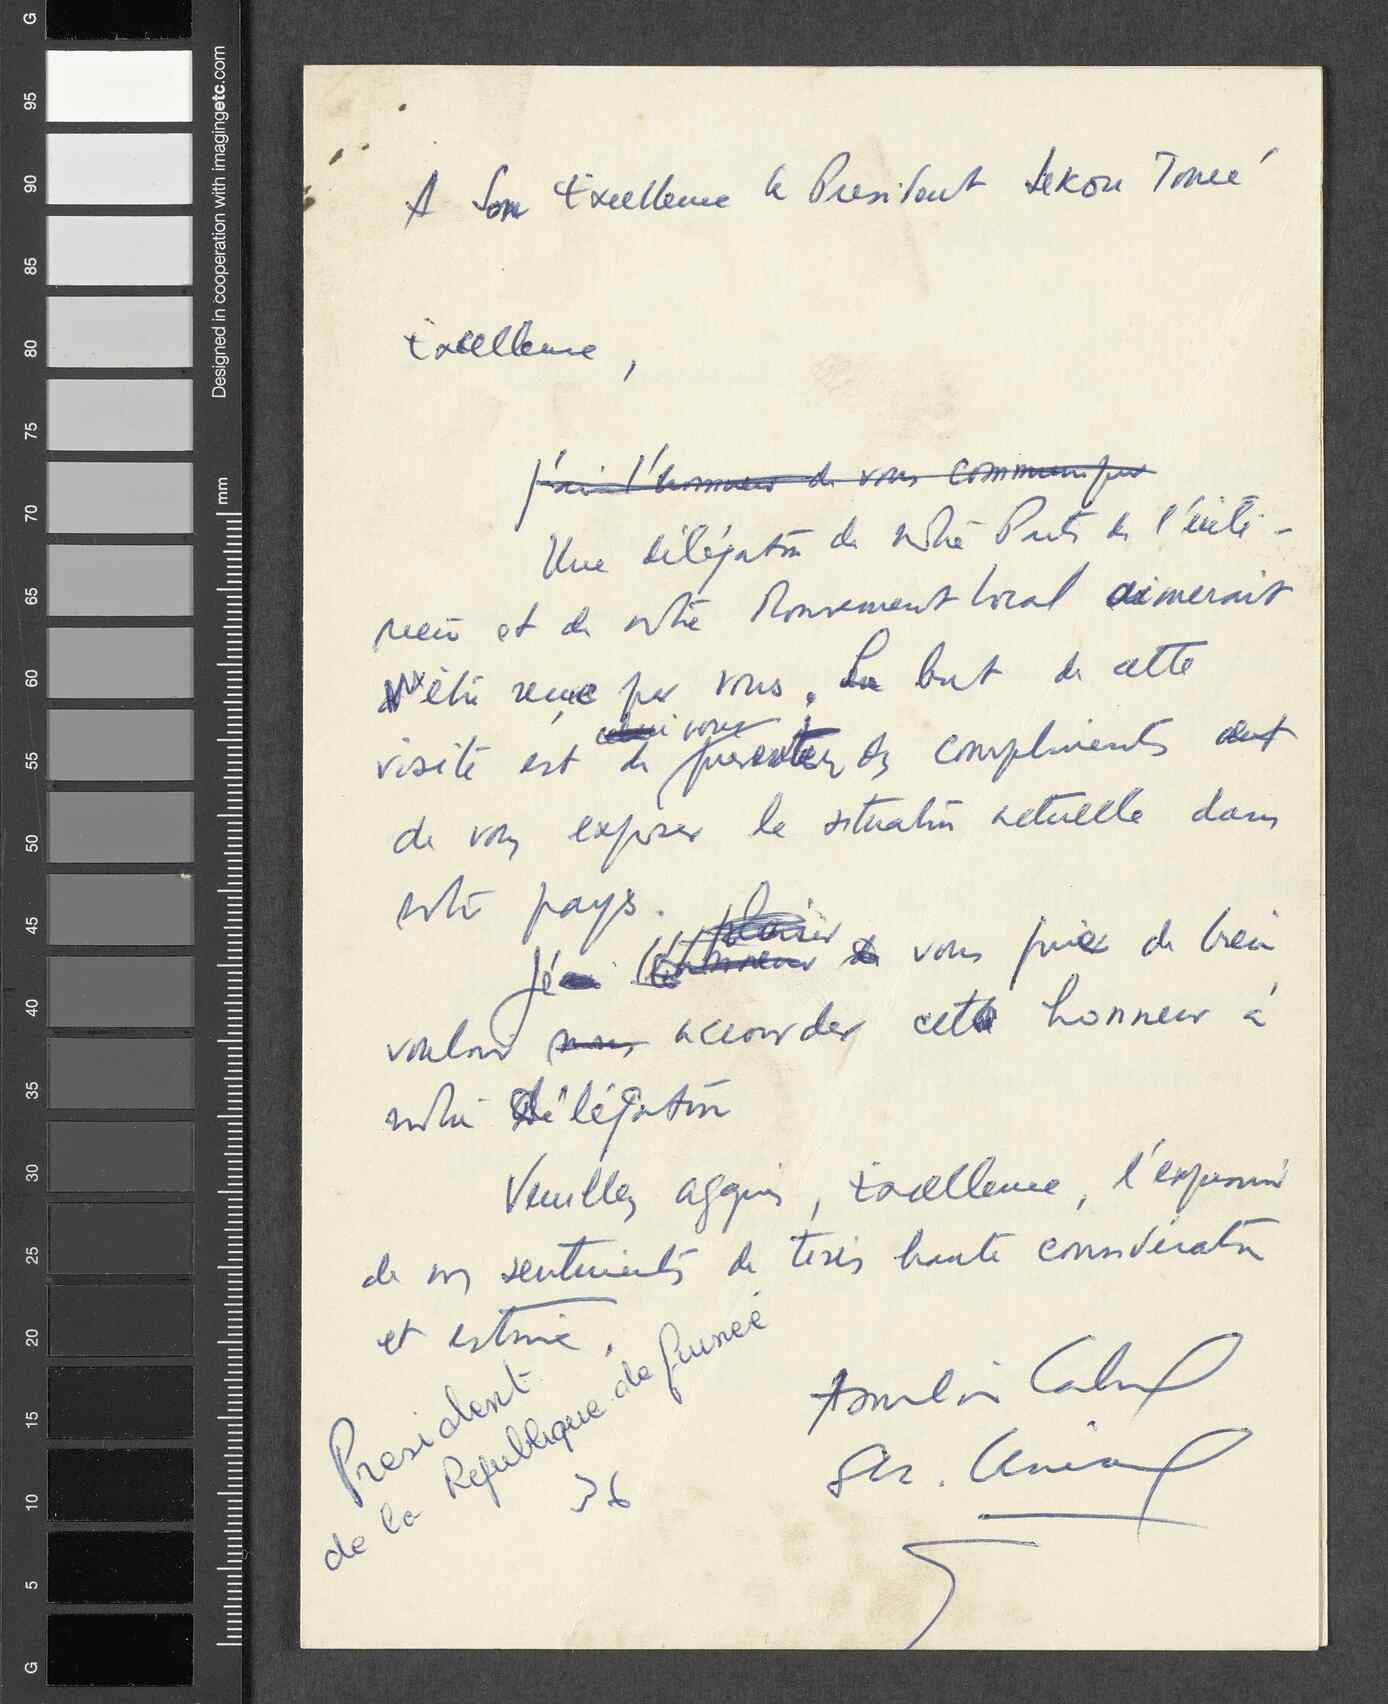 A Son Excellence le President Sekou Touré
Excellence,
j'ai l'honneur de vous communiquer
Une délégation de notre Parti de l'inté-
rieur et de notre Mouvement local aimerait
être reçue par vous. Le but de cette
vous
visite est de presenter des compliments et
de vous exposer la situation actuelle dans
notre pays.
plaisir
J'ai l'honneur de vous prier de bien
vouloir nous accourder cet honneur à
notre délégation
Veuillez aggrier, Excellence, l'expression
de nos sentiments de très haute consideration
et estime.
Amilcar Cabral
Sec. Général
President
de la Republique de Guinée
36
G
95
90
85
80
75
70
65
60
55
50
45
40
35
30
25
20
15
10
5
G
Designed in cooperation with imagingetc.com
mm